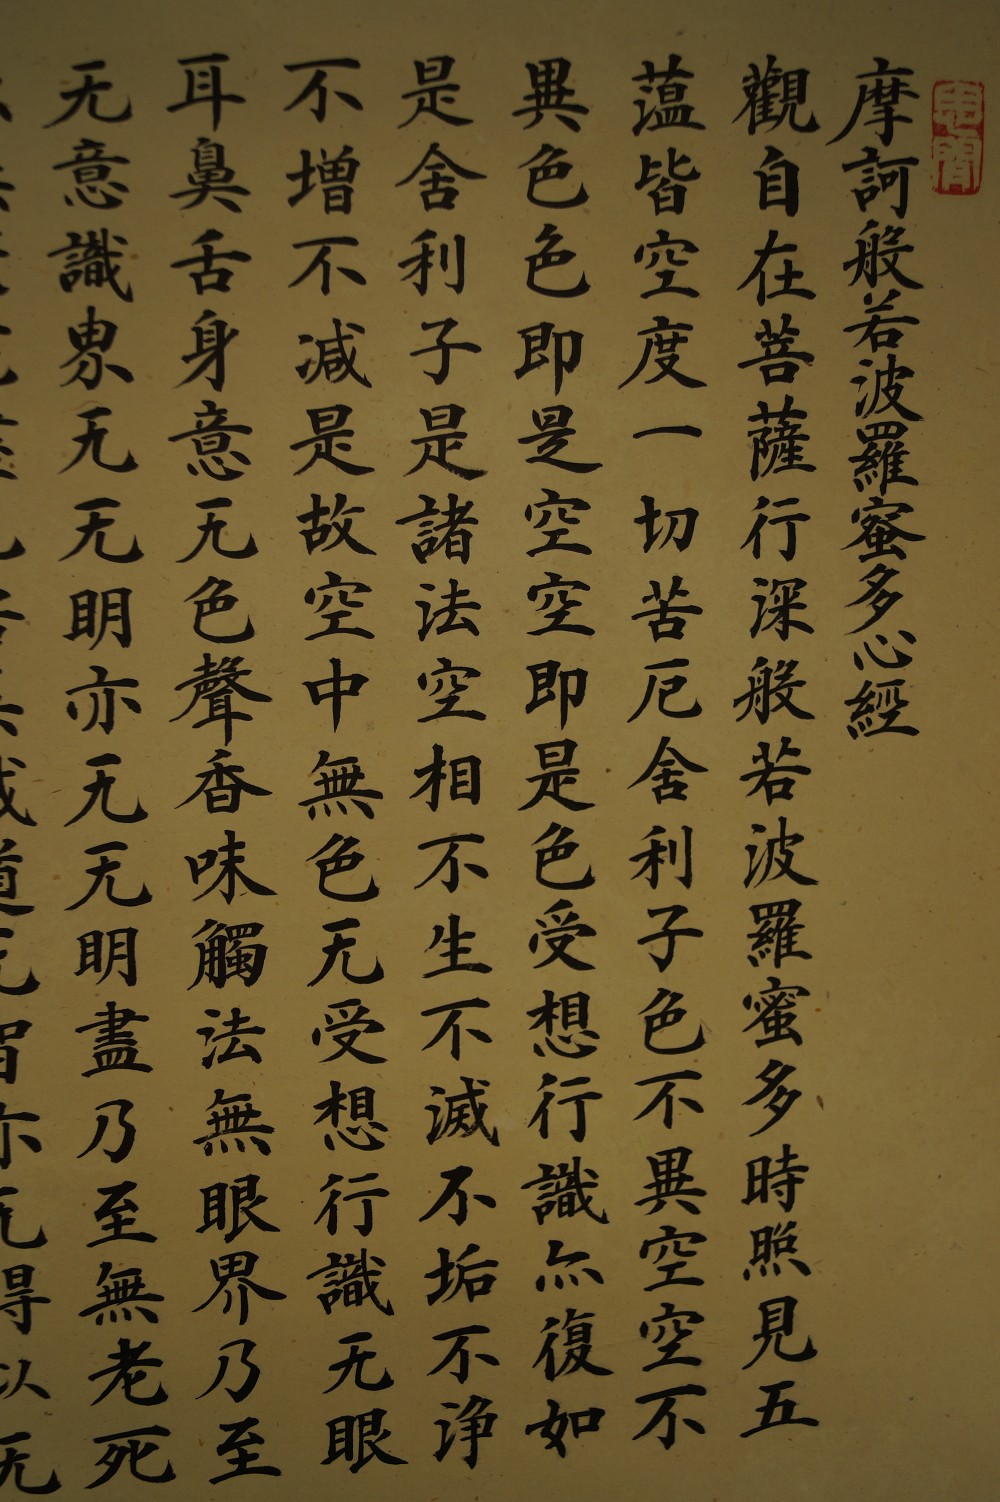 摩訶般若波羅蜜多心經
觀自在菩薩行深般若波羅蜜多時照見五
薀皆空度一切苦厄舍利子色不異空空不
異色色即是空空即是色受想行識亦復如
是舍利子是諸法空相不生不滅不垢不净
不增不减是故空中無色无受想行識无眼
耳鼻舌身意无色聲香味觸法無眼界乃至
无意識界无无明亦无无明盡乃至無老死
道无智亦无得以无